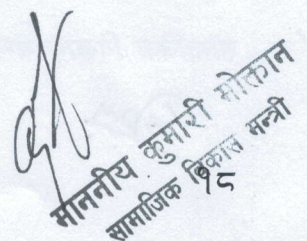 माननीय कुमारी मोक्तान
सामाजिक विकास मन्त्री
१८